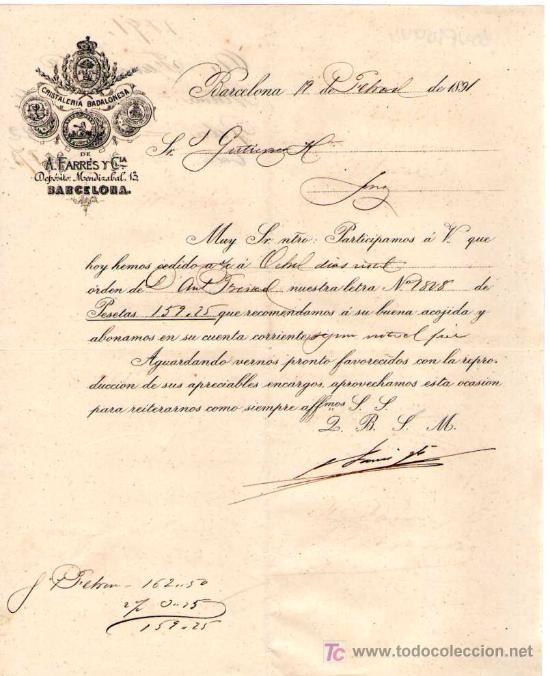 CRISTALERIA BADALONESA
DE
A. FARRÉS Y Cía
Depósito: Mendizabal, 13
BARCELONA.
Barcelona 12 de Febrero de 1891
Sr. Gutierrez
Muy Sr. ntro: Participamos á V. que
hoy hemos cedido a/c á Ocho dias
orden de D. nuestra letra Nº 7828 de
Pesetas 159.25 que recomendamos á su buena acojida y
abonamos en su cuenta corriente
Aguardando vernos pronto favorecidos con la repro-
duccion de sus apreciables encargos, aprovechamos esta ocasión
para reiterarnos como siempre affmos S. S.
Q. B. S. M.
162.50
2% 3.25
159.25
TC www.todocoleccion.net